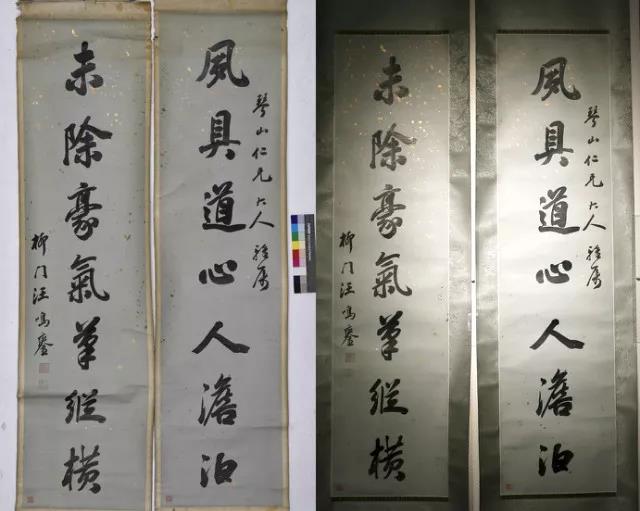 琴山仁兄大人雅屬
夙具道心人澹泊
未除豪氣筆縱橫
柳門汪鳴鑾
琴山仁兄大人雅屬
夙具道心人澹泊
未除豪氣筆縱橫
柳門汪鳴鑾